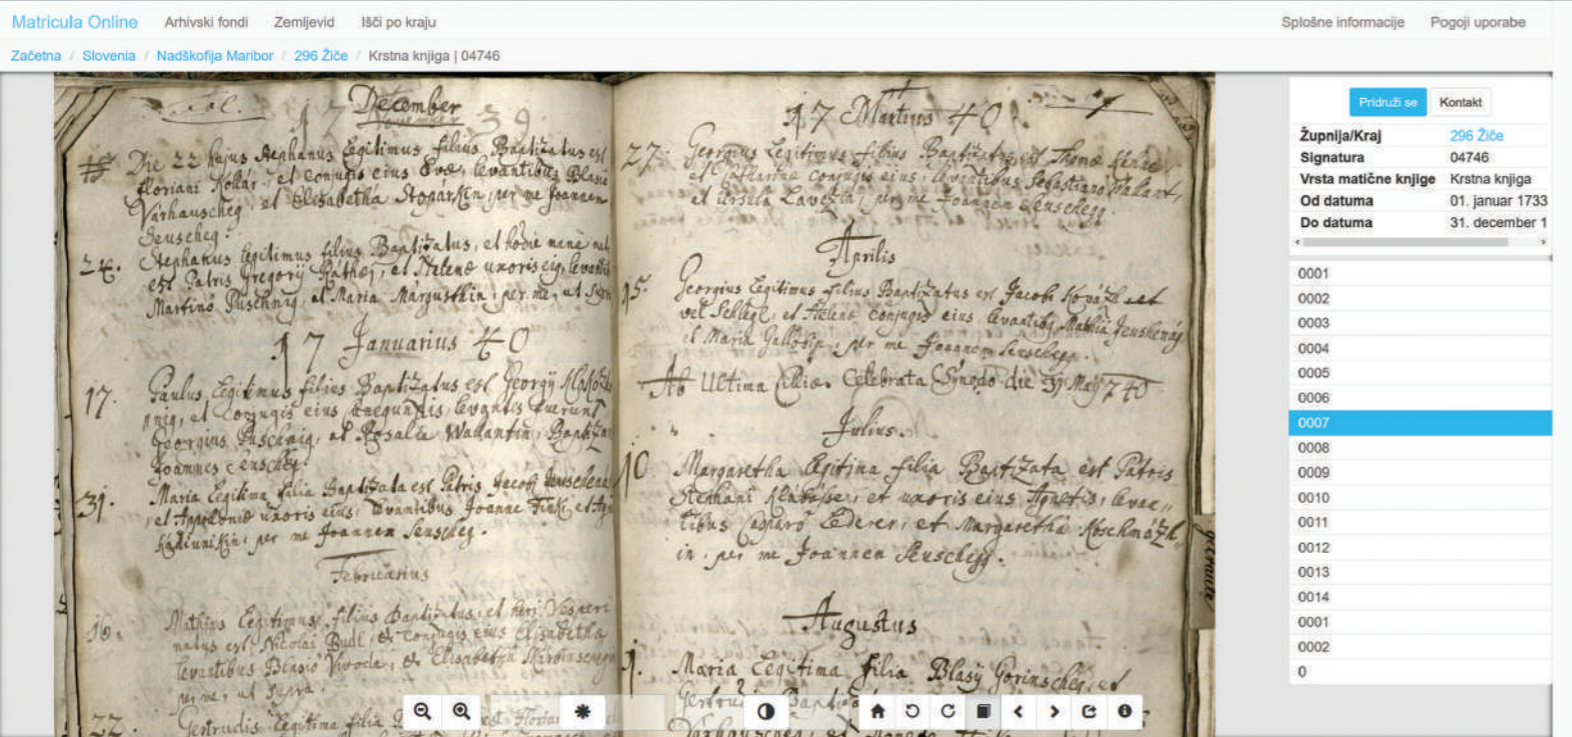 Matricula Online Arhivski fondi Zemljevid Išči po kraju Splošne informacije Pogoji uporabe
Začetna / Slovenia / Nadškofija Maribor / 296 Žiče / Krstna knjiga | 04746
Fol.
December
November
17 39.
Die 22 hujus Stephanus Legitimus filius Baptizatus est
Floriani Kollár et conjugis eius Evæ, levantibus Blasio
Várhauscheg, et Elisabetha Stopárkin, per me Joannem
Seuscheg.
24. Stephanus legitimus filius Baptizatus, et hodie mane
est Patris Gregorij et Helenæ uxoris levantib
Martino Puschnig, et Maria Margusthin, per me, ut
17 Januarius 40
17. Paulus, Legitimus filius Baptizatus est Georgij
et Conjugis eius levantes fuerunt
Georgius Puschnig, et Rosalia Wallantin, Baptiza
Joannes Seuscheg.
31. Maria Legitima filia Baptizata est Patris Jacobi
et Appoloniæ uxoris eius, levantibus Joanne et
per me Joannem Seuscheg.
Februarius
16. Mathias Legitimus filius Baptizatus, et heri Vesperi
natus est Nicolai Budl, et Conjugis eius Elisabetha
levantibus Blasio Vivoda, et Elisabetha
per me, ut supra.
22. Gertrudis Legitima filia est Floriani
17 Martius 40
7
27. Georgius Legitimus filius Baptizatus est Thomæ
et Catharinæ conjugis eius, levantibus Sebastiano
et Ursula per me Joannem Seuschegg.
Aprilis
15. Georgius Legitimus filius Baptizatus est Jacobi Kovázh et
vel et Helenæ conjugis eius levantibg Mathia
et Maria per me Joannem Seuschegg.
Ab Ultima Celebrata Synodo die 31 Maÿ 740
Julius.
10. Margaretha Legitima filia Baptizata est Patris
Stephani et uxoris eius Agnetis, levan„
tibus Casparo Lederer, et Margaretha Koschmázh„
in, per me Joannem Seuschegg.
Augustus
1. Maria Legitima filia Blasij Gorinscheg, et
Baptiza
Pridruži se Kontakt
Župnija/Kraj 296 Žiče
Signatura 04746
Vrsta matične knjige Krstna knjiga
Od datuma 01. januar 1733
Do datuma 31. december 1
0001
0002
0003
0004
0005
0006
0007
0008
0009
0010
0011
0012
0013
0014
0001
0002
0